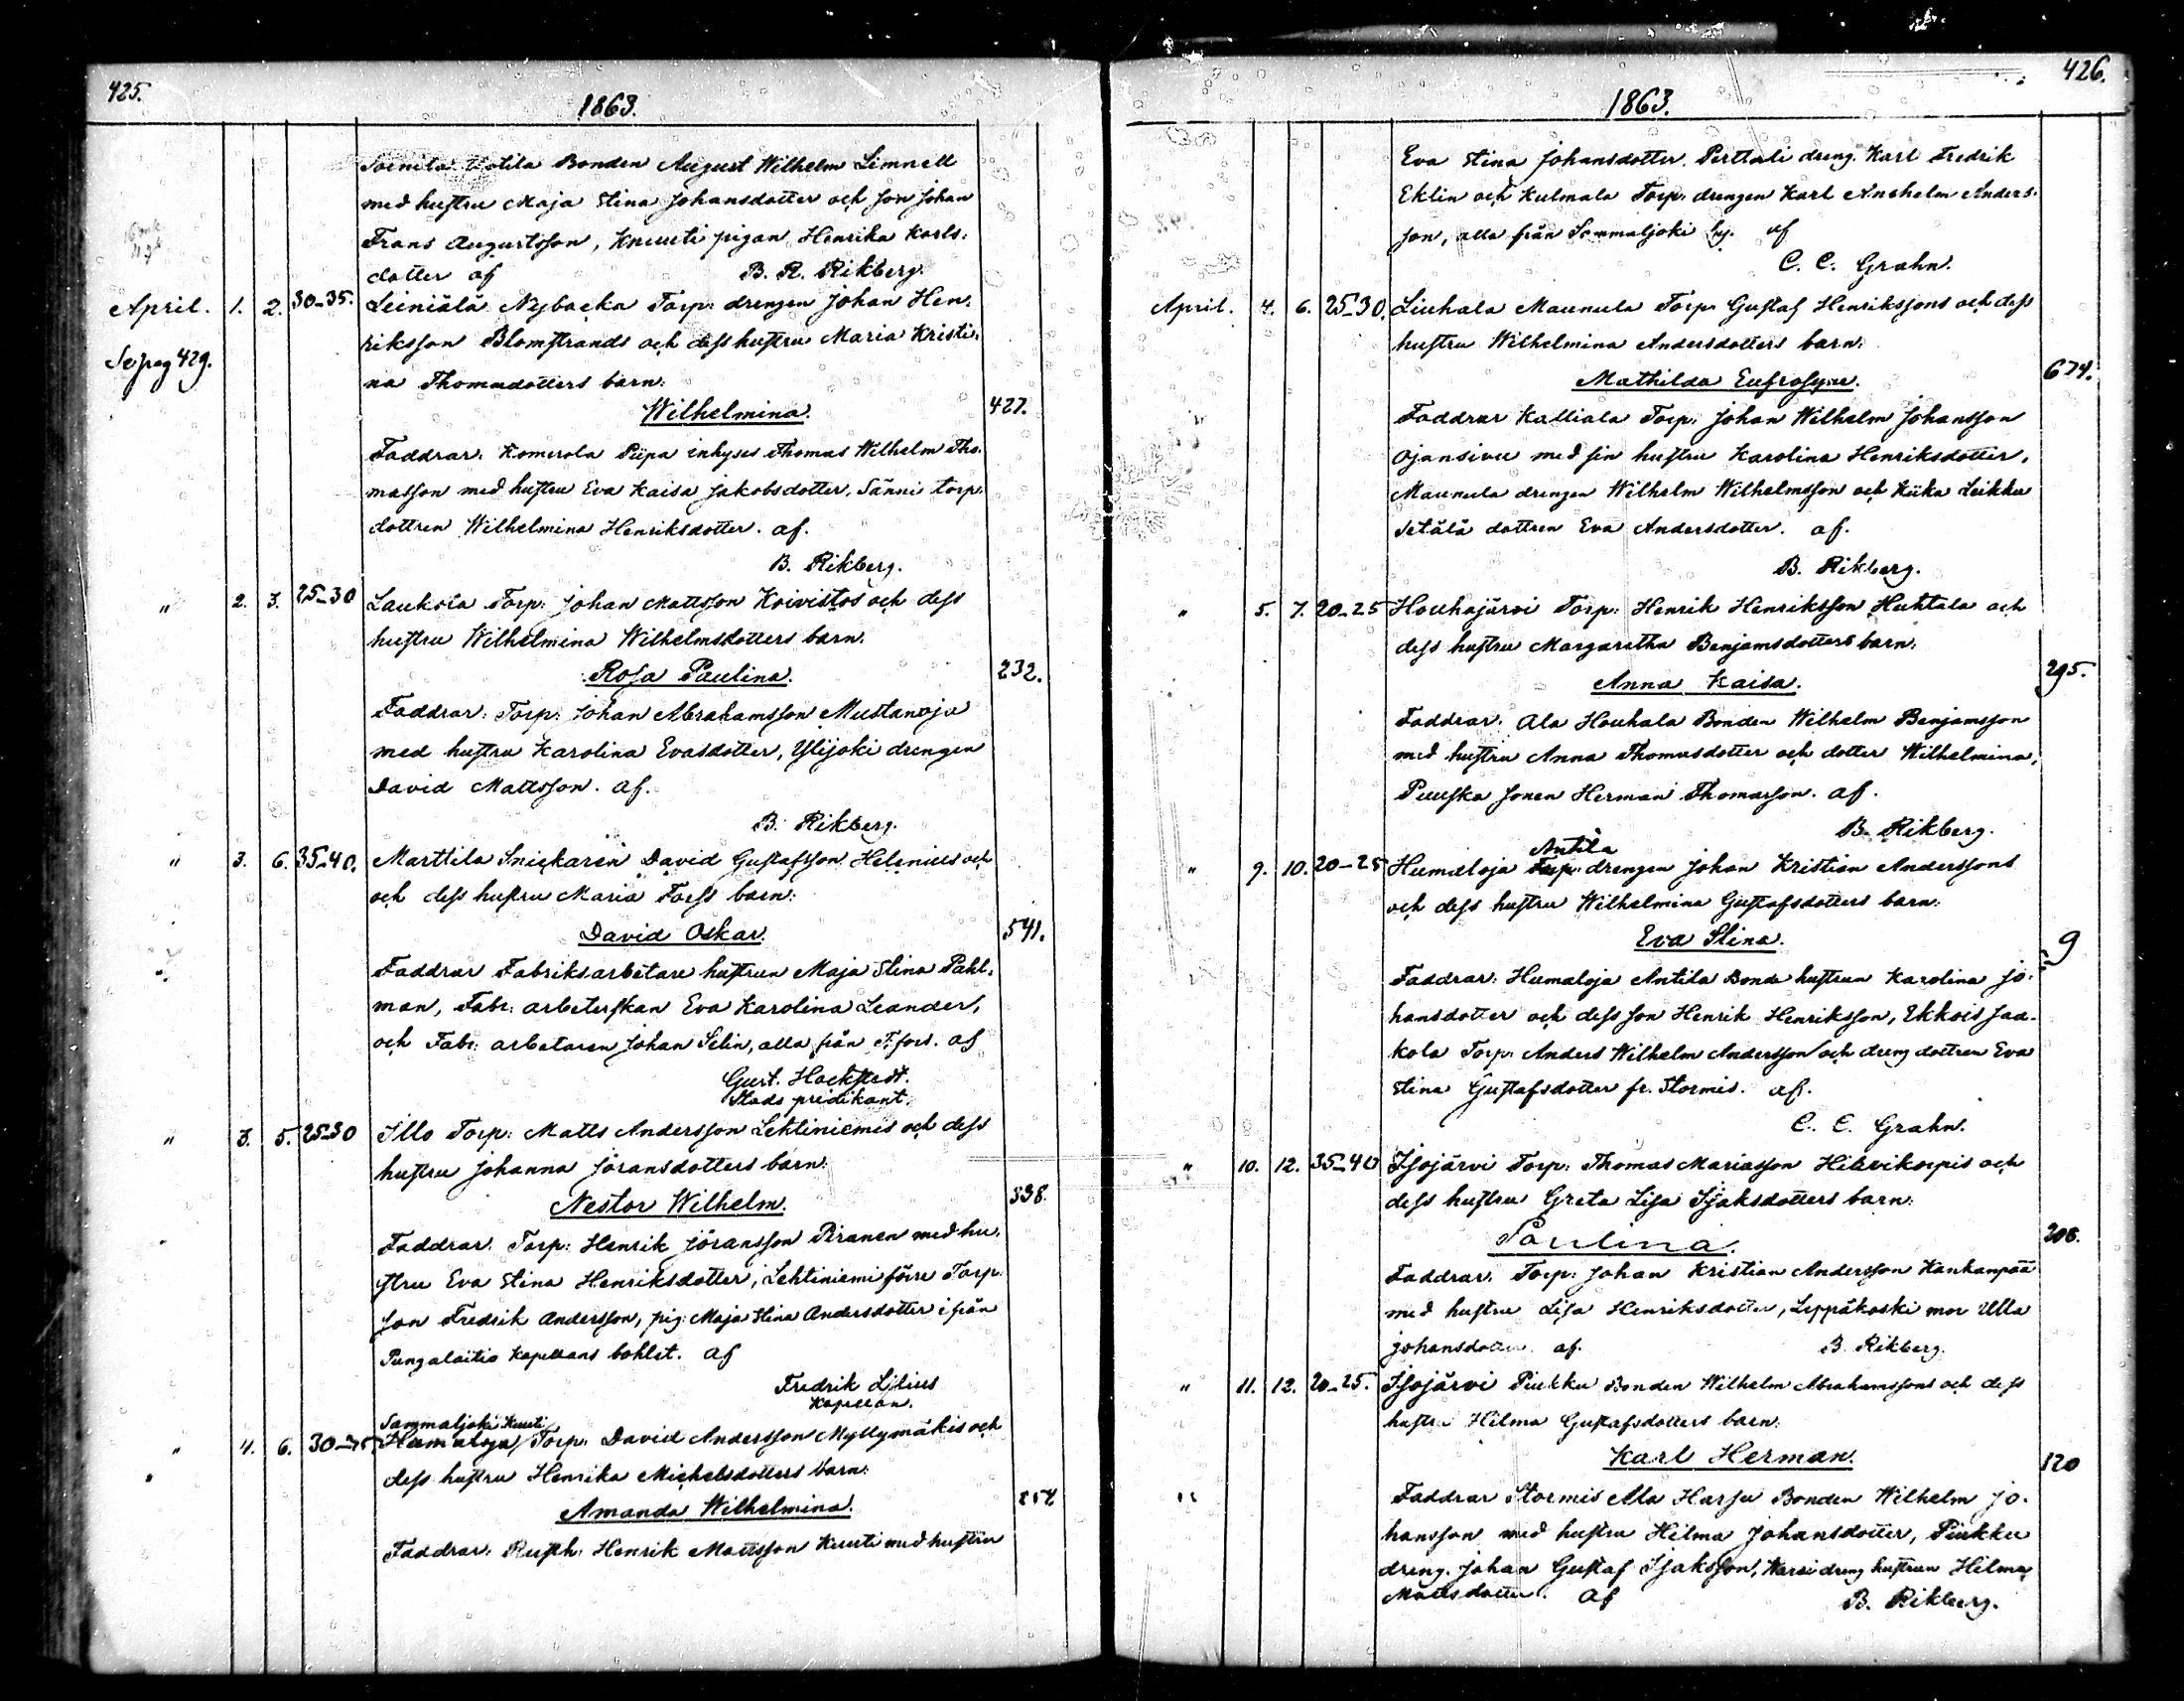 425.
1863.
Bonden August Wilhelm Limnell
med hustru Maja Stina Johansdotter och son Johan
Frans Augustsson, Knuuti pigan Henrika Karls-
dotter af B. R. Rikberg.
April. 1. 2. 30-35. Leiniälä Nybacka Torp: drengen Johan Hen-
riksson Blomstrands och dess hustru Maria Kristi-
Se pag 429. na Thomasdotters barn:
Wilhelmina. 427.
Faddrar: Komerola Piipa inhyses Thomas Wilhelm Tho-
masson med hustru Eva Kaisa Jakobsdotter, Sänni torp.
dottren Wilhelmina Henriksdotter. af.
B. Rikberg.
" 2. 3. 25-30 Laukola Torp: Johan Mattsson Koivistos och dess
hustru Wilhelmina Wilhelmsdotters barn.
Rosa Paulina. 232.
Faddrar: Torp: Johan Abrahamsson Mustanoja
med hustru Karolina Evasdotter, Ylijoki drengen
David Mattsson. af.
B. Rikberg.
" 3. 6. 35-40. Marttila Snickaren David Gustafsson Helenius och
och dess hustru Maria Forss barn:
David Oskar. 541.
Faddrar Fabriksarbetare hustrun Maja Stina Pahl-
man, Fabr: arbeterskan Eva Karolina Leander,
och Fabr: arbetaren Johan Selin, alla från T.fors. af
Gust. Hockstedt.
Stads predikant.
" 3. 5. 25-30 Illo Torp: Matts Andersson Lehtiniemis och dess
hustru Johanna Jöransdotters barn:
Nestor Wilhelm. 338.
Faddrar: Torp: Henrik Jöransson Piranen med hu-
stru Eva Stina Henriksdotter, Lehtiniemi förre Torp:
son Fredrik Andersson, pig: Maja Stina Andersdotter ifrån
Pungalaitio Kapellans bohlet. af
Fredrik Lilius
Kapellan.
Sammaljoki Kuuti
" 4. 6. 30-35. Humaloja Torp: David Andersson Myllymäkis och
dess hustru Henrika Michelsdotters barn:
Amanda Wilhelmina.
Faddrar: Rusth: Henrik Mattsson Kuuti med hustru
426.
1863.
Eva Stina Johansdotter. Perttuli dreng. Karl Fredrik
Eklin och Kulmala Torp: drengen Karl Anshelm Anders-
son, alla från Sammaljoki by. af
C. E. Grahn.
April. 4. 6. 25-30. Liuhala Maunula Torp. Gustaf Henrikssons och dess
hustru Wilhelmina Andersdotters barn:
Mathilda Eufrosyne. 674.
Faddrar Kalliala Torp: Johan Wilhelm Johansson
Ojansivu med sin hustru Karolina Henriksdotter,
Maunula drengen Wilhelm Wilhelmsson och Kiika Leikku
Setälä dottren Eva Andersdotter. af.
B. Rikberg.
" 5. 7. 20-25 Houhajärvi Torp: Henrik Henriksson Huhtala och
dess hustru Margaretha Benjamsdotters barn:
Anna Kaisa. 295.
Faddrar: Ala Houhala Bonden Wilhelm Benjamsson
med hustru Anna Thomasdotter och dotter Wilhelmina,
Puuska sonen Herman Thomasson. af.
B. Rikberg.
Antila
" 9. 10. 20-25 Humaloja Torp: drengen Johan Kristian Anderssons
och dess hustru Wilhelmina Gustafsdotters barn:
Eva Stina. 9
Faddrar: Humaloja Antila Bonde hustrun Karolina Jo-
hansdotter och dess son Henrik Henriksson, Ekkois Jaa-
kola Torp: Anders Wilhelm Andersson och dreng dottren Eva
Stina Gustafsdotter fr. Stormis. af.
C. E. Grahn.
" 10. 12. 35-40 Isojärvi Torp: Thomas Mariasson Hilavikorpis och
dess hustru Greta Lisa Isaksdotters barn:
Paulina. 208.
Faddrar: Torp: Johan Kristian Andersson Kankanpää
med hustru Lisa Henriksdotter, Leppäkoski mor Ulla
Johansdotter. af. B. Rikberg.
" 11. 12. 20-25. Isojärvi Piukku Bonden Wilhelm Abrahamssons och dess
hustru Hilma Gustafsdotters barn:
Karl Herman. 120
Faddrar Stormis Ala Harju Bonden Wilhelm Jo-
hansson med hustru Hilma Johansdotter, Piukku
dreng. Johan Gustaf Isaksson, Warsi dreng hustrun Hilma
Mattsdotter. af B. Rikberg.